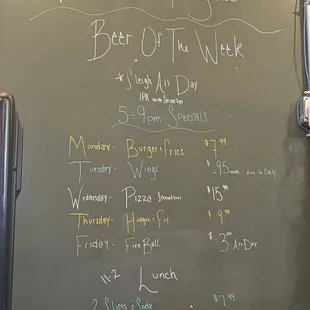 Beer Of The Week
*Sleigh All Day
IPA
5-9pm Specials
Monday - Burger & Fries $7.99
Tuesday - Wings $.95
Wednesday - Pizza $15.99
Thursday - $9.99
Friday - Fire Ball $3.00 All Day
11-2 Lunch
2 Slices & Soda $7.99